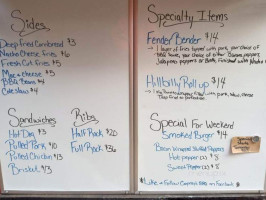 Sides
Deep Fried Cornbread $3
Nacho Cheese Fries $6
Fresh Cut Fries $5
Mac n cheese $5
BBQ Beans $4
Cole slaw $4
Sandwiches
Hot Dog $3
Pulled Pork $10
Pulled Chicken $13
Brisket $13
Ribs
Half Rack $20
Full Rack $36
Specialty Items
Fender Bender $14
1 layer of fries topped with pork, your choice of
BBQ sauce, your choice of cheese, Banana
Jalapeno peppers or Both, Finished with
Hillbilly Roll up $14
with pork, Mac, cheese
Deep fried to perfection
Special For Weekend
Smoked Burger $14
Bacon Wrapped Stuffed Peppers
Hot pepper (2) $8
Sweet pepper (2) $8
Like & Follow on Facebook